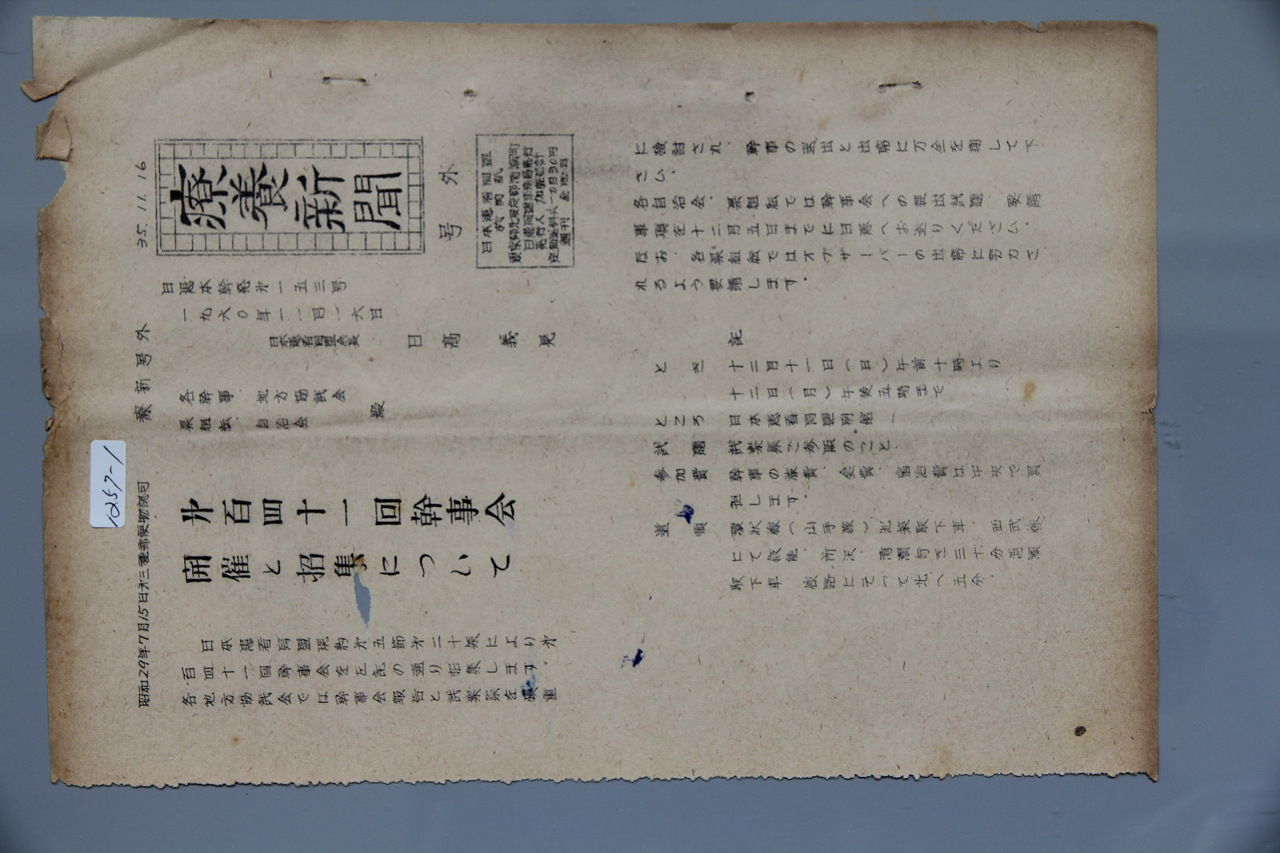 1257-1
昭和29年7月15日第三種郵便物認可
療新号外
35.11.16
療養新聞
号外
日本患者同盟
機関紙
週刊
日患本幹発第一五三号
一九六〇年一一月一六日
日本患者同盟会長
日高義見
各幹事・地方協議会
県組織・自治会
殿
第百四十一回幹事会
開催と招集について
日本患者同盟規約第五節第二十条により第
百四十一回幹事会を左記の通り招集します。
各地方協議会では幹事会報告と議案を慎重
に検討され、幹事の選出と出席に万全を期して下
さい。
各自治会、県組織では幹事会への提出議題、要請
事項を十二月五日までに日患へお送りください。
なお、各県組織ではオブザーバーの出席に努力さ
れるよう要請します。
記
とき 十二月十一日(日)午前十時より
十二日(月)午後五時まで
ところ 日本患者同盟別館
議題 議案集ご参照のこと
参加費 幹事の旅費、会費、宿泊費は中央で負
担します。
道順 環状線(山手線)池袋駅下車、西武線
にて飯能、所沢、清瀬行で三十分清瀬
駅下車 線路にそって北へ五分。